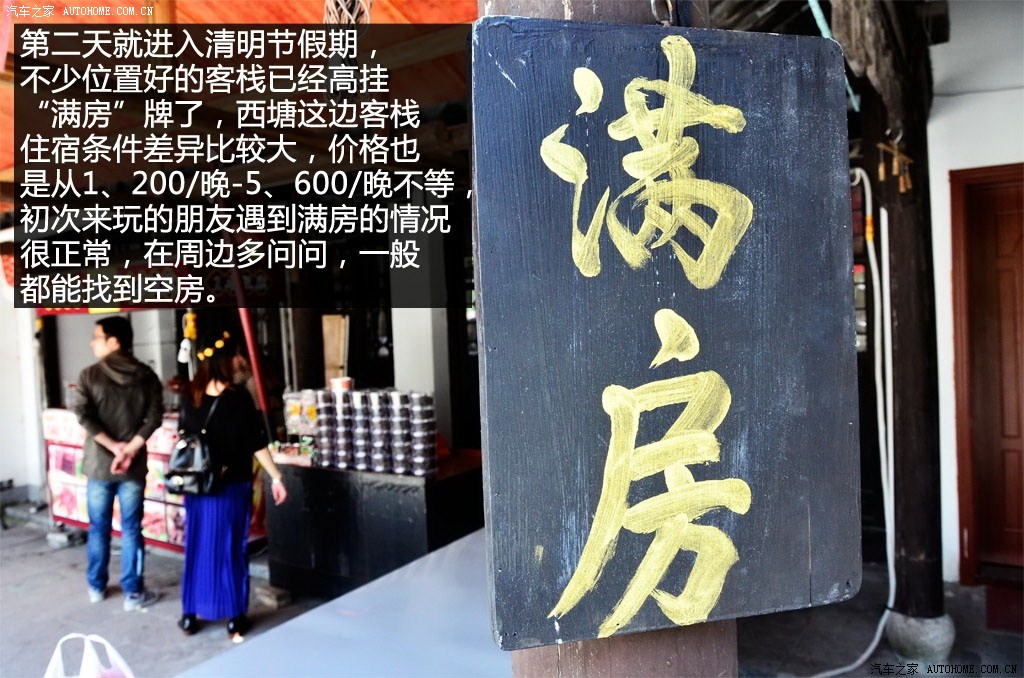 汽车之家 AUTOHOME.COM.CN
第二天就进入清明节假期，
不少位置好的客栈已经高挂
“满房”牌了，西塘这边客栈
住宿条件差异比较大，价格也
是从1、200/晚-5、600/晚不等，
初次来玩的朋友遇到满房的情况
很正常，在周边多问问，一般
都能找到空房。
满
房
汽车之家 AUTOHOME.COM.CN